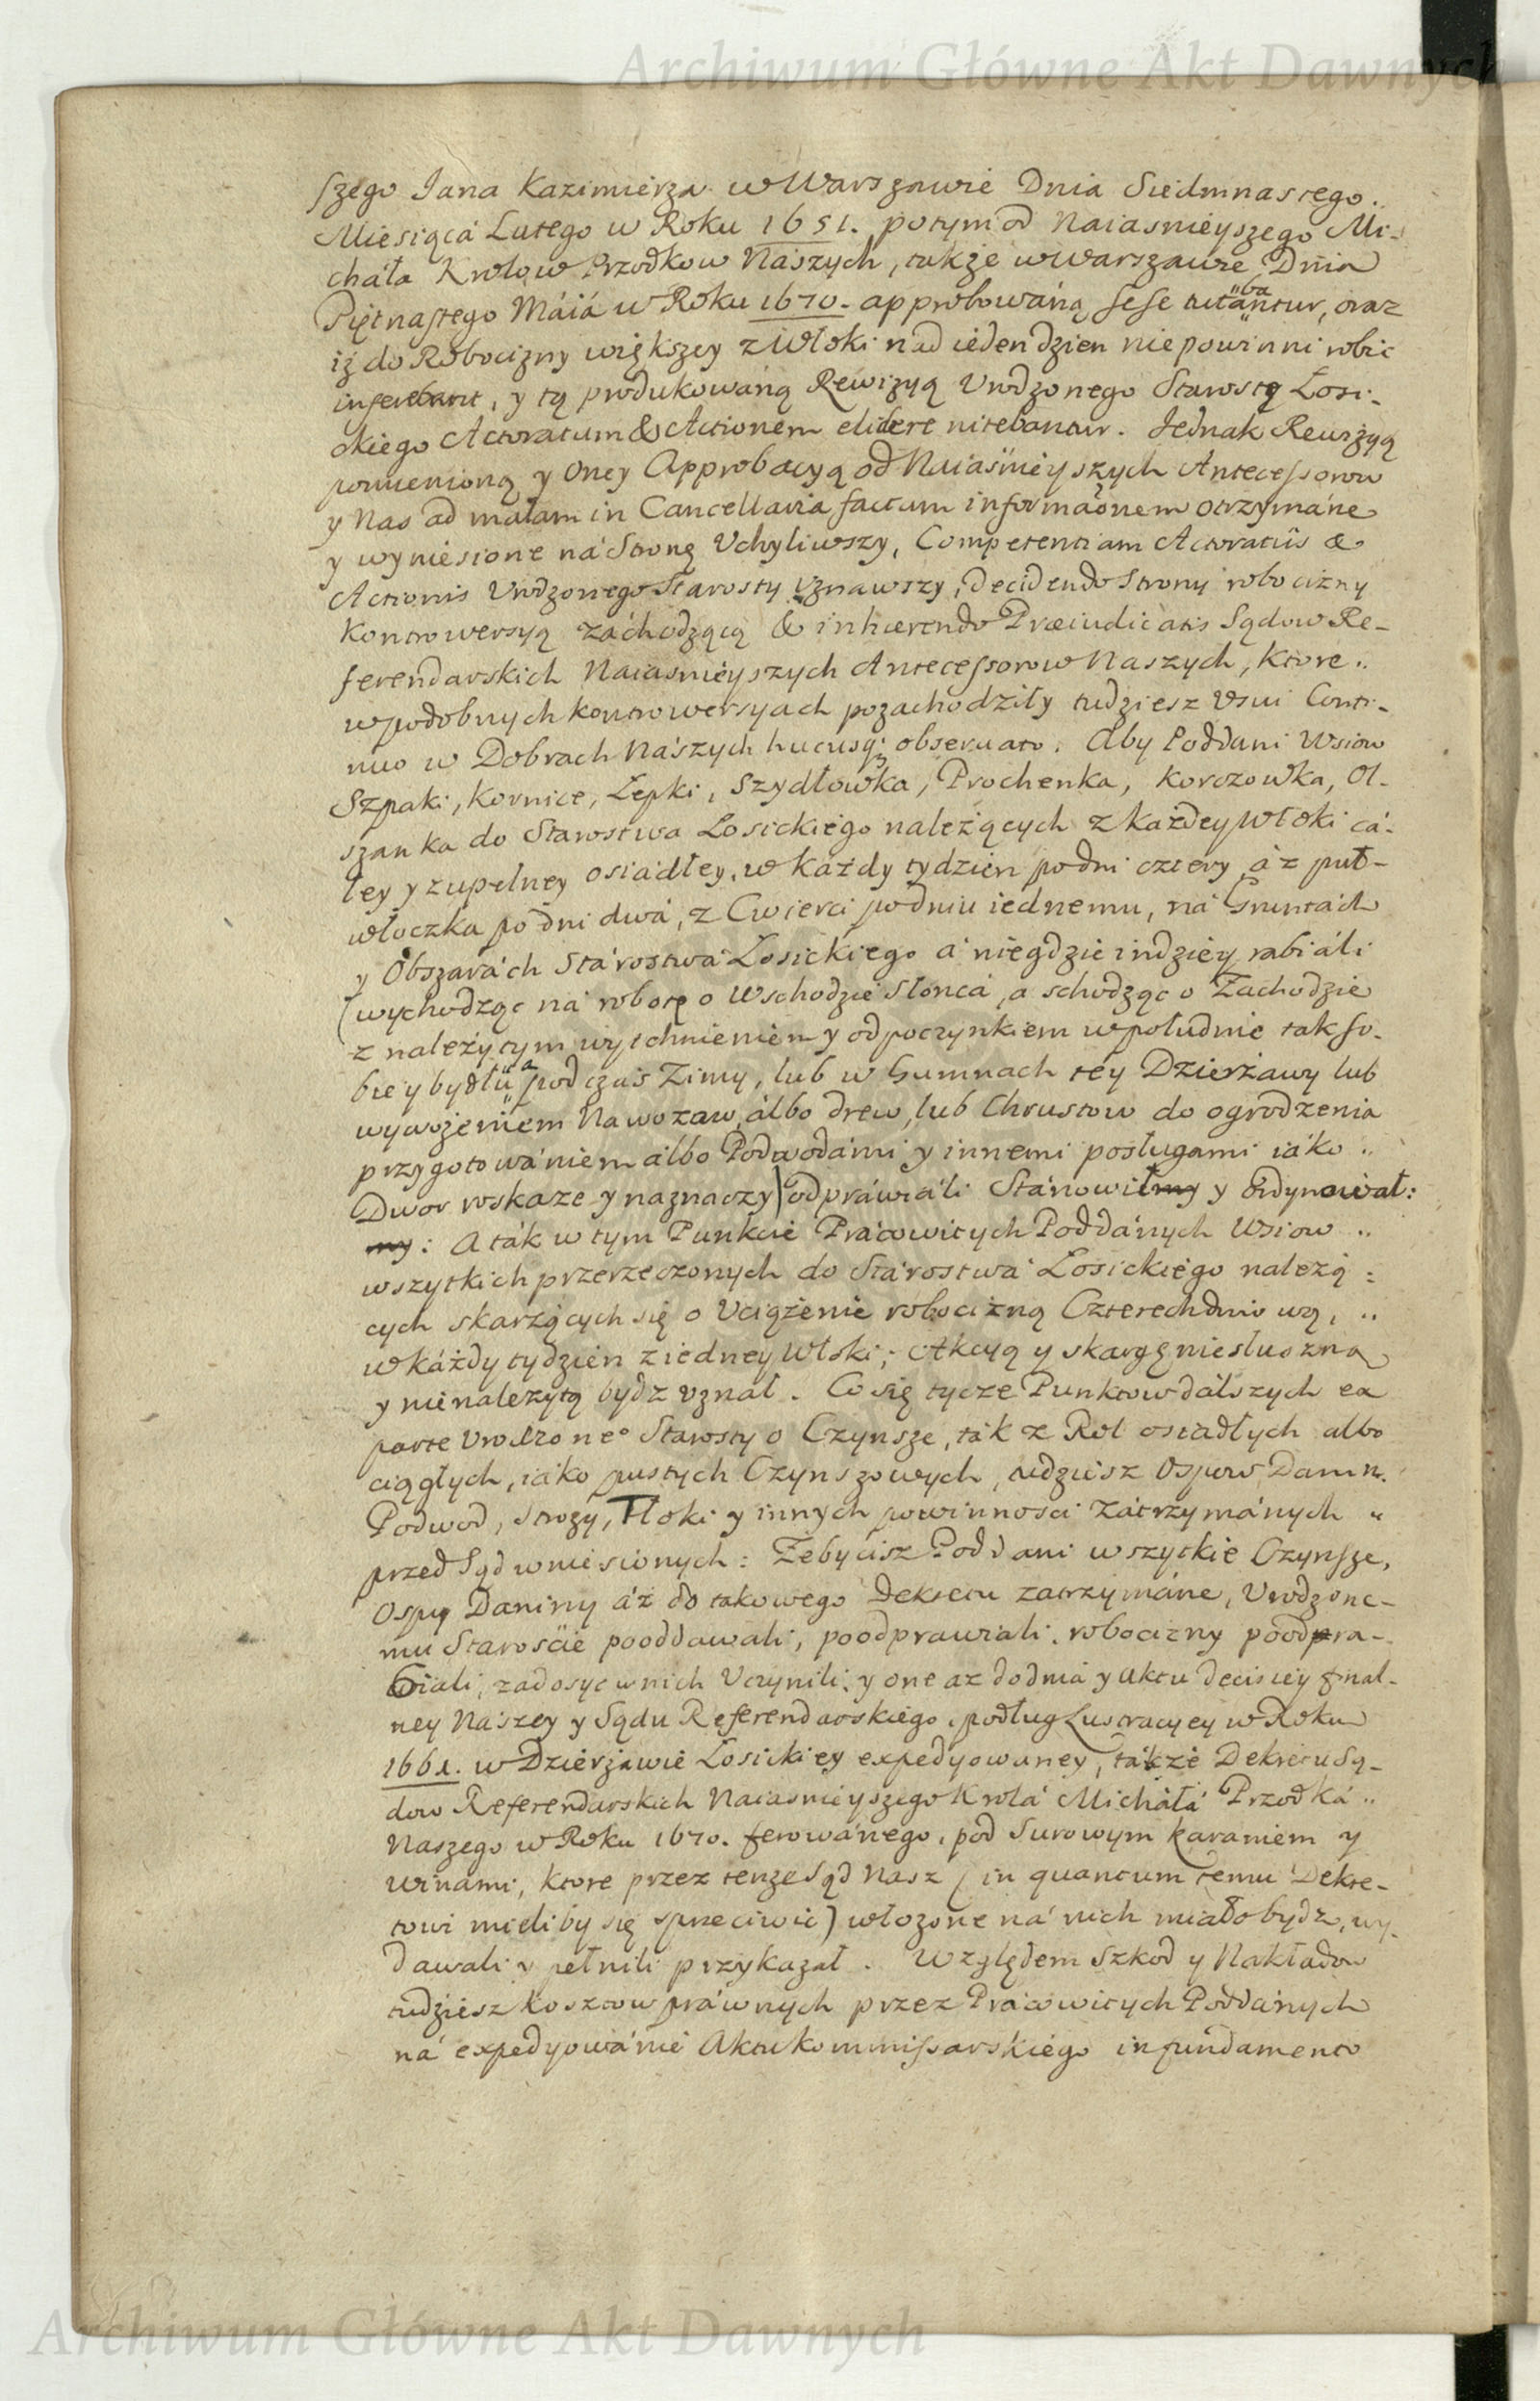 Archiwum Główne Akt Dawnych
szego Jana Kazimierza w Warszawie Dnia Siedmnastego..
Miesiąca Lutego w Roku 1651. potym od Naiasnieyszego Mi-
chała Krolow Przodkow Naszych, takze w Warszawie Dnia
Piętnastego Máiá w Roku 1670. approbowáną sese tutabantur, oraz
iż do Robocizny większey z Włoki nad ieden dzien nie powinni robic
inferebant, y tą produkowáną Rewizyą Vrodzonego Starostę Łosi-
ckiego Actoratum & Actionem elidere nitebantur. Jednak Rewizyą
pomienioną y Oney Approbacyą od Naiasnieyszych Antecessorow
y Nas ad malam in Cancellaria factam informaonem otrzymáne
y wyniesione ná Stronę Vchyliwszy, Competentiam Actoratûs &
Actionis Vrodzonego Starosty Vznawszy, decidendo Strony robocizny
Kontrowersyą záchodzącą & inhærendo Præiudicatis Sądow Re-
ferendarskich Naiasnieyszych Antecessorow Naszych, Ktore..
w podobnych kontrowersyach pozachodziły tudziesz Vsui Conti-
nuo w Dobrach Naszych hucusq; obseruato. Aby Poddani Wsiow
Szpaki, Kornice, Łepki, Szydłowka, Prochenka, Korczowka, Ol-
szanka do Starostwa Łosickiego należących z każdey Włoki cá-
łey y zupełney osiadłey, w każdy tydzien po dni cztery, á z puł-
włoczka po dni dwá, z Cwierci po dniu iednemu, ná Gruntách
y Obszarách Stárostwá Łosickiego á niegdzie indziey rabiáli
(wychodząc ná robotę o Wschodzie Słońcá, a schodząc o Zachodzie
z należytym wytchnieniem y odpoczynkiem w południe tak so-
bie y bydłu a podczas Zimy, lub w Gumnach tey Dzierżawy lub
wywożeniem Nawozaw, álbo drew, lub Chrustow do ogrodzenia
przygotowániem álbo Podwodámi y innemi posługami iáko..
Dwor wskaze y naznaczy) odpráwiáli Stánowiłmy y Ordynował:
my: A ták w tym Punkcie Prácowitych Poddánych Wsiow..
wszytkich przerzeczonych do Stárostwá Łosickiego należą:
cych skarżących się o Vciążenie robocizną Czterechdniową, ..
w káżdy tydzien z iedney Włoki; Akcyą y skargę niesłuszną
y nienależytą bydz vznał. Co się tycze Punktow dálszych ex
parte Vrodzone° Starosty o Czynsze, ták z Rol osiadłych albo
ciągłych, iáko pustych Czynszowych, tudziesz Ospow Danin.
Podwod, Strozy, Tłoki y innych powinnosci zátrzymánych "
przed Sąd wniesionych: Żeby cisz Poddani wszytkie Czynsze,
Ospy Daniny áż do takowego Dekretu zatrzymáne, Vrodzone-
mu Starosćie pooddawali, poodprawiali. robocizny poodra-
biali, zadosyc w nich Vczynili, y one az do dnia y Aktu decisiey final-
ney Nászey y Sądu Referendarskiego, podług Lustracyey w Roku
1661. w Dzierżawie Łosickiey expedyowaney, tákże Dekretu Są-
dow Referendarskich Naiasnieyszego Krolá Micháłá Przodká..
Naszego w Roku 1670. ferowánego, pod surowym karaniem y
winami, ktore przez tenze Sąd Nasz (in quantum temu Dekre-
towi mieliby się sprzeciwic) włozone ná nich miáło bydz, wy-
dawali y pełnili przykazał. Względem Szkod y Nakładow
tudziesz kosztow práwnych przez Prácowitych Poddánych
ná expedyowánie Aktu kommissarskiego in fundamento
Archiwum Główne Akt Dawnych